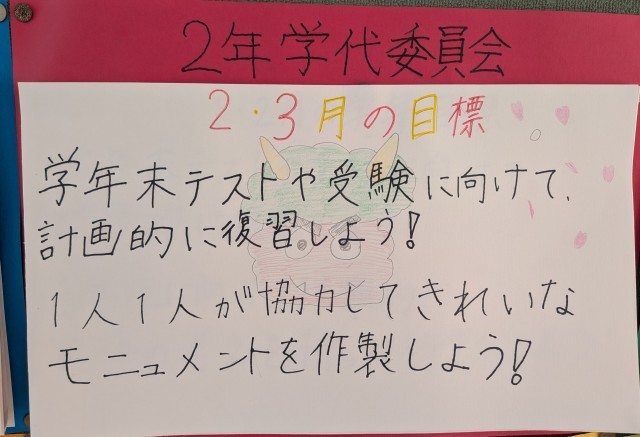 2年学代委員会
2・3月の目標
学年末テストや受験に向けて、
計画的に復習しよう!
1人1人が協力してきれいな
モニュメントを作製しよう!